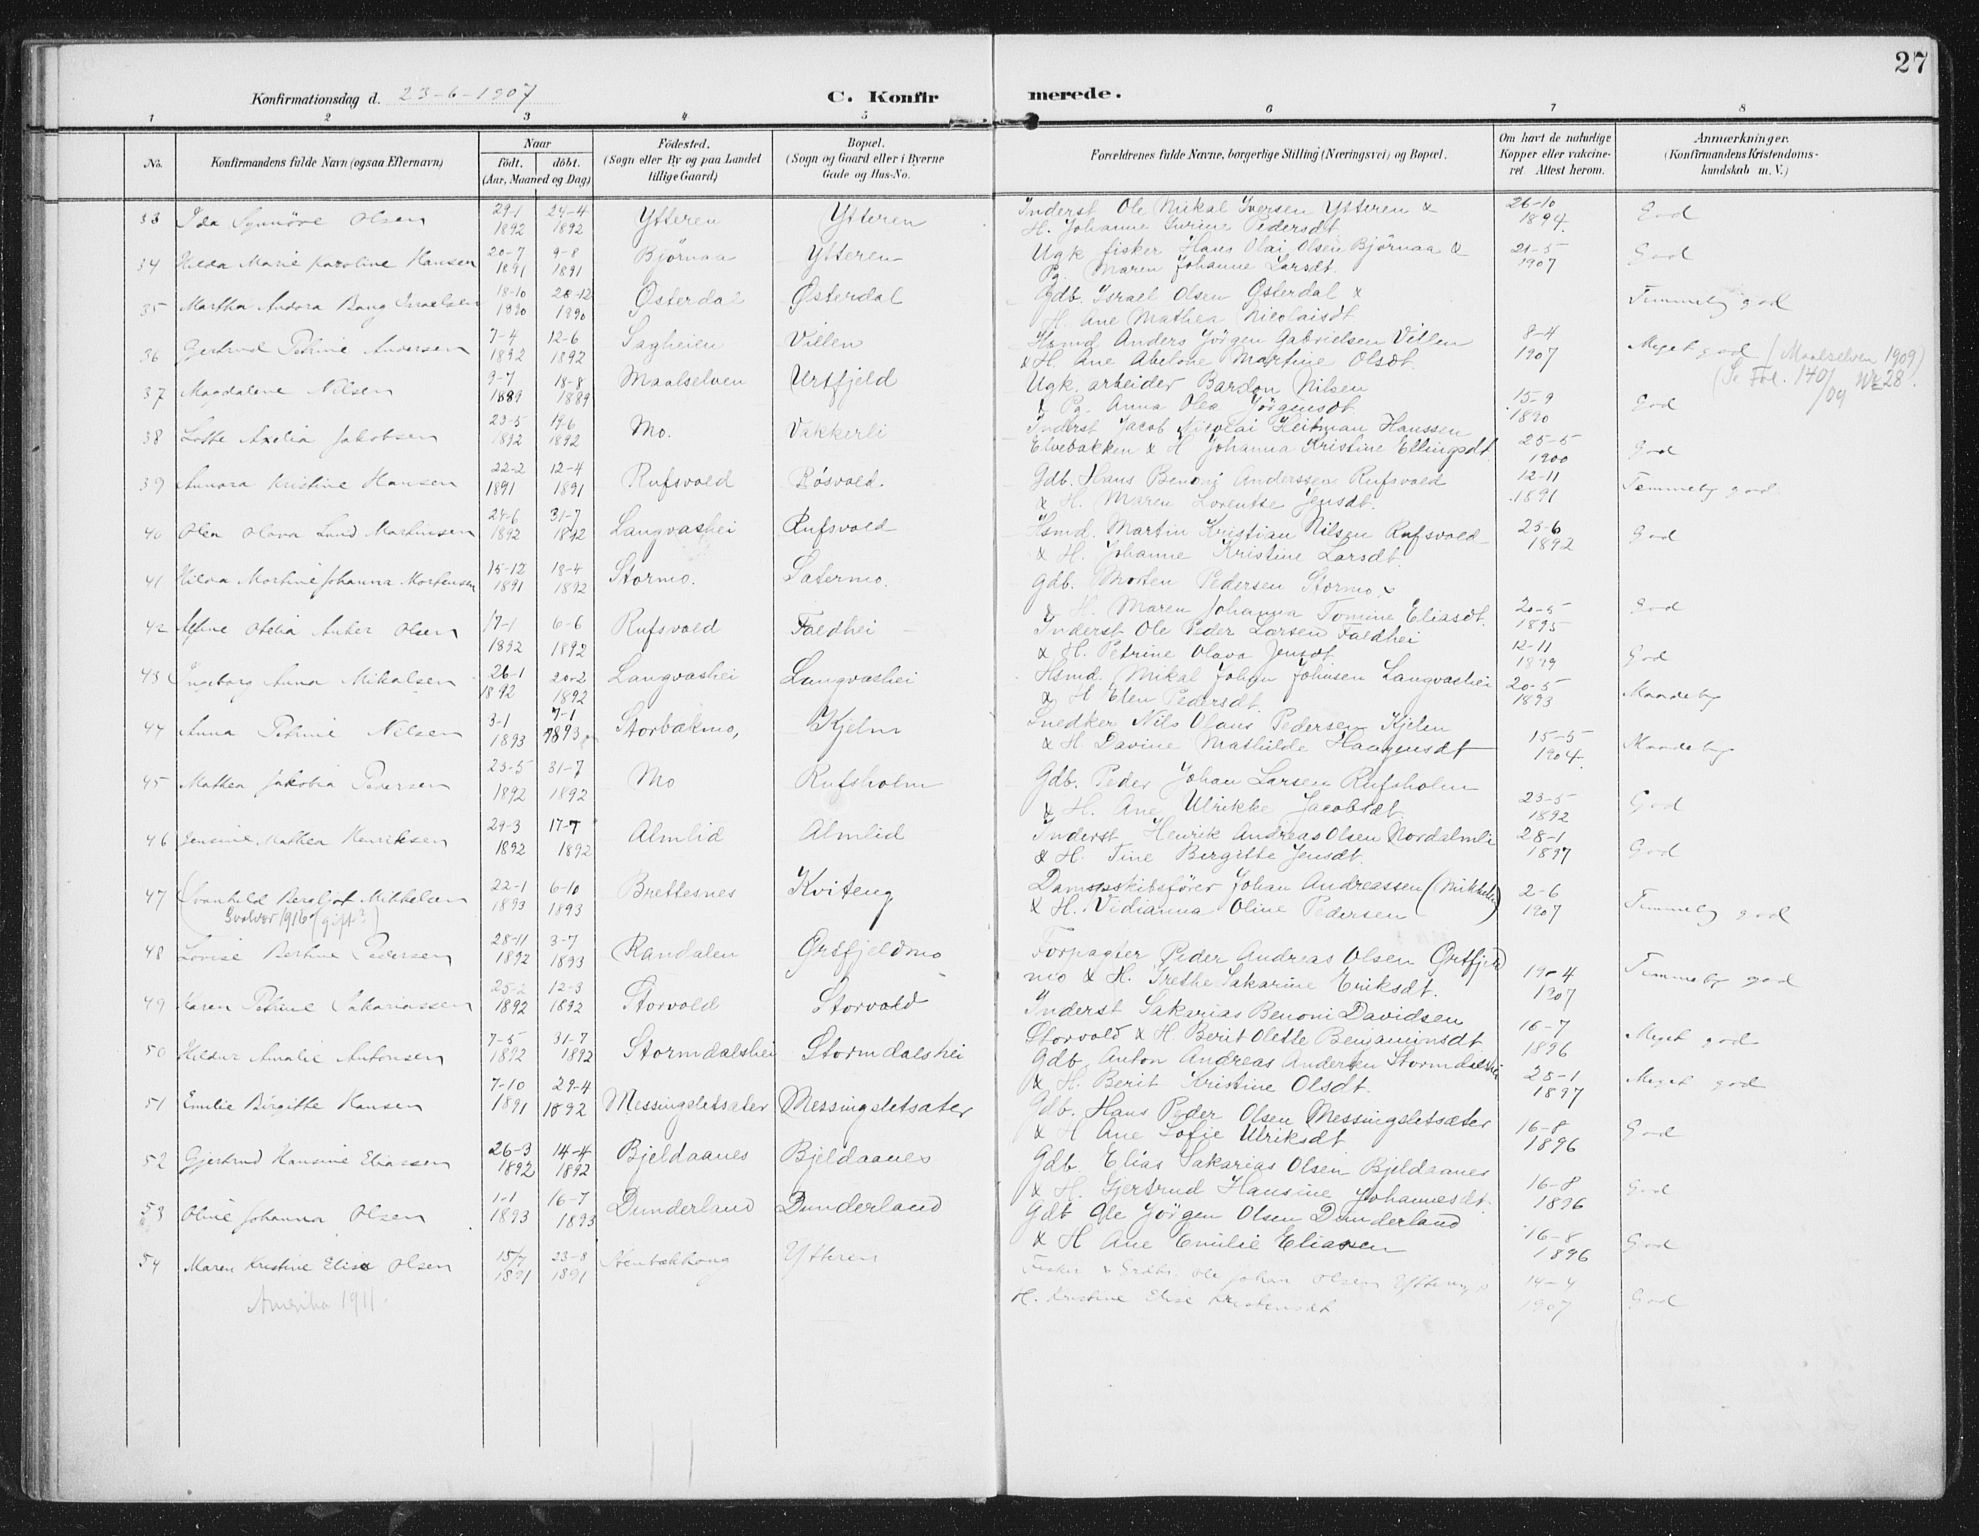 27
Konfirmationsdag d. 23-6-1907 C. Konfirmerede.
1 2 3 4 5 6 7 8
No. Konfirmandens fulde Navn (ogsaa Efternavn) Naar født. døbt. (Aar, Maaned og Dag) Födested. (Sogn eller By og paa Landet tillige Gaard) Bopæl. (Sogn og Gaard eller i Byerne Gade og Hus-No. Forældrenes fulde Navne, borgerlige Stilling (Næringsvei) og Bopæl. Om havt de naturlige Kopper eller vakcineret Attest herom. Anmærkninger. (Konfirmandens Kristendomskundskab m. V.)
33 Ida Synnöve Olsen 29-1 1892 24-4 1892 Ytteren Ytteren Inderst Ole Mikal Iversen Ytteren & H. Johanne Pedersdt 26-10 1894 God
34 Hilda Marie Karoline Hansen 20-7 1891 9-8 1891 Bjørnaa Ytteren Ugk fisker Hans Olai Olsen Björnaa & Pg. Maren Johanne Larsdt. 21-5 1907 God
35 Martha Andora Bang Israelsen 18-10 1890 28-12 1890 Østerdal Østerdal Gdb. Israel Olsen Østerdal & H. Ane Mathea Nicolaisdt Temmelig god
36 Gertrud Petrine Andersen 7-4 1892 12-6 1892 Sagheien Villen Hsmd Anders Jörgen Gabrielsen Villen & H. Ane Abelone Martine Olsdt. 8-4 1907 Meget god
37 Magdalene Nilsen 9-7 1889 18-8 1889 Maalselven Urtfjeld Ugk. arbeider Bardon Nilsen & Pg. Anna Olea Jörgensdt 15-9 1890 God (Maalselven 1909) (Se Fol. 140/09 Nr 28.
38 Lotte Axelia Jakobsen 23-5 1892 19-6 1892 Mo. Vakkerli Inderst Jacob Nicolai Heitman Hanssen Elvebakken & H Johanna Kristine Ellingsdt 25-5 1900 God
39 Annora Kristine Hansen 22-2 1891 12-4 1891 Rufsvold Røsvold. Gdb. Hans Benonj Anderssen Rufsvold & H. Maren Lorentse Jensdt. 12-11 1891 Temmelig god
40 Olea Olava Lund Martinsen 24-6 1892 31-7 1892 Langvashei Rufsvold Hsmd. Martin Kristian Nilsen Rufsvold & H. Johanne Kristine Larsdt. 23-6 1892 God
41 Hilda Martine Johanna Mortensen 15-12 1891 18-4 1892 Stormo. Satermo. Gdb. Morten Pedersen Stormo & H. Maren Johanna Tomine Eliasdt. 20-5 1895 God
42 Otelia Anker Olsen 17-1 1892 6-6 1892 Rufsvold Faldhei Inderst Ole Peder Larsen Faldhei & H. Petrine Olava Jensdt 12-11 1899 God
43 Ingeborg Anna Mikalsen 26-1 1892 20-2 1892 Langvashei Langvashei Hsmd. Mikal Johan Johnsen Langvashei & H Elen Pedersdt. 20-5 1893 Maadelig
44 Anna Petrine Nilsen 3-1 1893 7-1 1893 Storbækmo, Kjelen Snedker Nils Olaus Pedersen Kjelen & H. Davine Mathilde Haagensdt 15-5 1904. Maadelig
45 Mathea Jakobia Pedersen 23-5 1892 31-7 1892 Mo Rufsholm Gdb. Peder Johan Larsen Rufsholm & H. Ane Ulrikke Jacobsdt. 23-5 1892 God
46 Jensine Mathea Henriksen 29-3 1892 17-7 1892 Almlid Almlid Inderst Henrik Andreas Olsen Nordalmli & H. Tine Bergitte Jensdt. 28-1 1897 God
47 Svanhild Bergljot Mikkelsen 22-1 1893 6-10 1893 Brettesnes Kviteng Dampskibsfører Johan Andreassen (Mikkelsen) & H. Vedianna Oline Pedersen 2-6 1907 Temmelig god
Svolvær 1916 (gift?)
48 Lovise Bertine Pedersen 28-11 1892 3-7 1893 Randalen Ørtfjeldmo Forpagter Peder Andreas Olsen Ørtfjeldmo & H. Grethe Sakarine Eriksdt. 19-4 1907 Temmelig god
49 Karen Petrine Sakariassen 25-2 1892 12-3 1892 Storvold Storvold Inderst Sakarias Benoni Davidsen Storvold & H. Berit Olette Benjaminsdt 16-7 1896 Meget god
50 Hildur Amalie Antonsen 7-5 1892 31-7 1892 Stormdalshei Stormdalshei Gdb. Anton Andreas Andersen Stormdalshei & H. Berit Kristine Olsdt. 28-1 1897 Meget god
51 Emilie Birgitte Hansen 7-10 1891 29-4 1892 Messingsletsæter Messingsletsæter Gdb. Hans Peder Olsen Messingsletsæter & H Ane Sofie Ulriksdt 16-8 1896 God
52 Gjertrud Hansine Eliassen 26-3 1892 14-4 1892 Bjeldaanes Bjeldaanes Gdb. Elias Sakarias Olsen Bjeldaanes & H. Gjertrud Hansine Johannesdt. 16-8 1896 God
53 Oline Johanna Olsen 1-1 1893 16-7 1893 Dunderland Dunderland Gdb Ole Jörgen Olsen Dunderland & H Ane Emilie Eliassen 16-8 1896 God
54 Maren Kristine Elise Olsen 15/7 1891 23-8 1891 Stenbækhaug Ytteren Fisker & Ole Johan Olsen Ytteren & H. Kristine Elise Kristensdt. 14-4 1907 God
Amerika 1911.